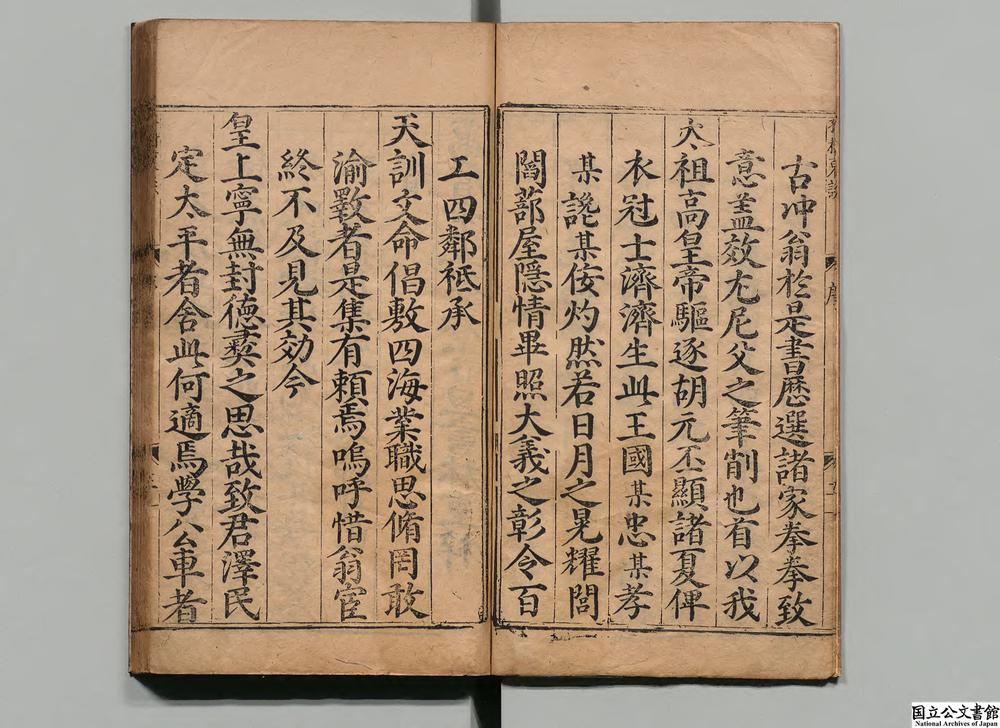 古冲翁於是書曆選諸家拳拳致
意盖效尤尼父之筆削也有以我
太祖高皇帝驅逐胡元丕顯諸夏俾
衣冠士濟濟生此王國某忠某孝
某讒某佞灼然若日月之晃耀閭
閻蔀屋隱情畢照大義之彰令百
工四鄰祗承
天訓文命倡敷四海業職思脩罔敢
渝斁者是集有頼焉嗚呼惜翁宦
終不及見其効今
皇上寧無封德彛之思哉致君澤民
定太平者舍此何適焉學公車者
国立公文書館
National Archives of Japan